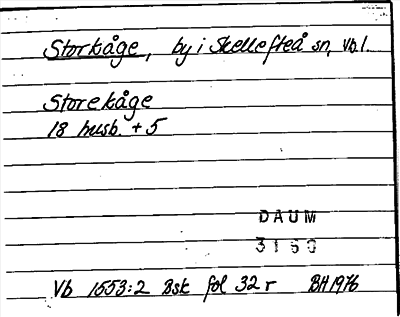 Storkåge, by i Skellefteå sn, Vb l.
Storekåge
18 husb. + 5
DAUM
3160
Vb 1553:2 Bsk fol 32 r BH 1976